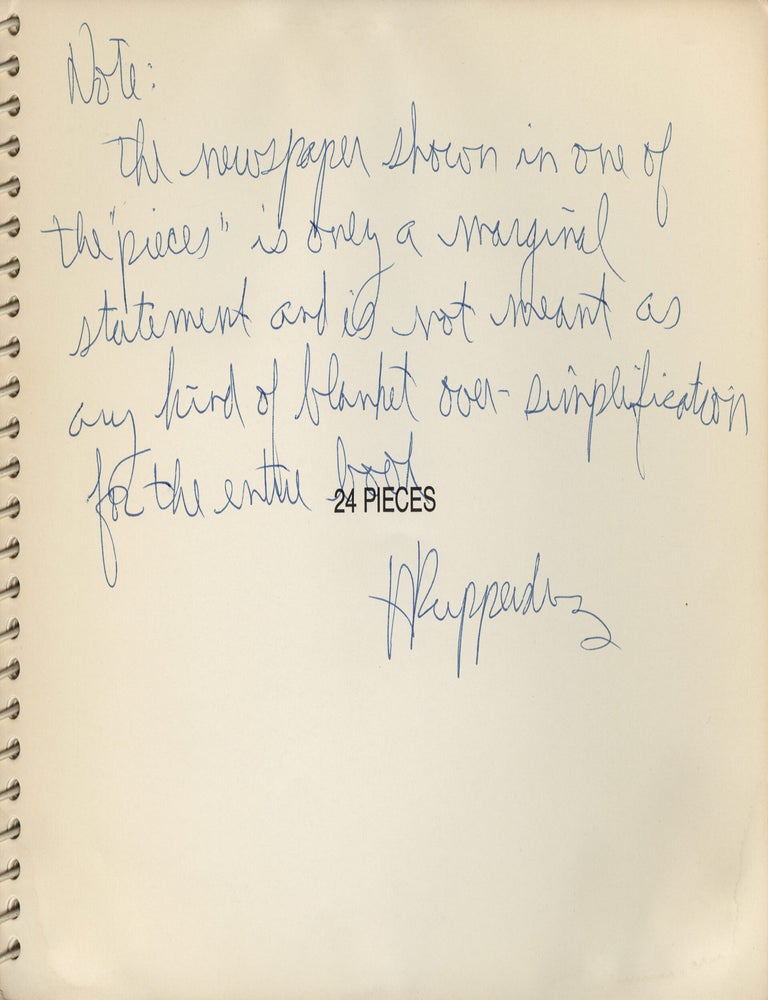 Note:
The newspaper shown in one of
the "pieces" is only a marginal
statement and is not meant as
any kind of blanket over-simplification
for the entire book
24 PIECES
A Ruppersberg